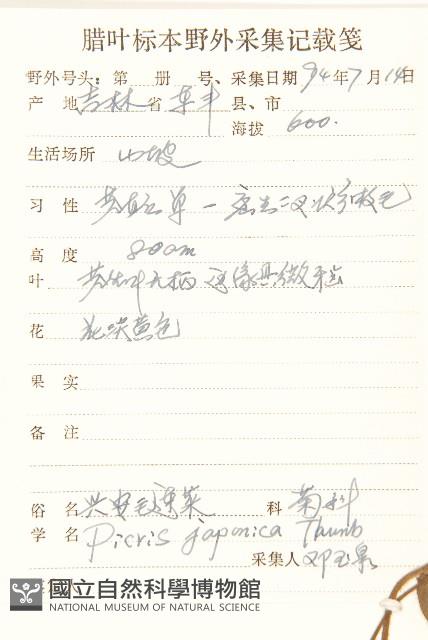 腊叶标本野外采集记载笺
野外号头：第 册 号、采集日期94年7月14日
产 地 吉林省 县、市
海拔 600.
生活场所 山坡
习 性 草
高 度 80cm
叶 无柄
花 花淡黄色
果 实
备 注
俗 名 兴安毛连菜 科 菊科
学 名 Picris japonica Thunb
采集人 邓玉泉
國立自然科學博物館
NATIONAL MUSEUM OF NATURAL SCIENCE